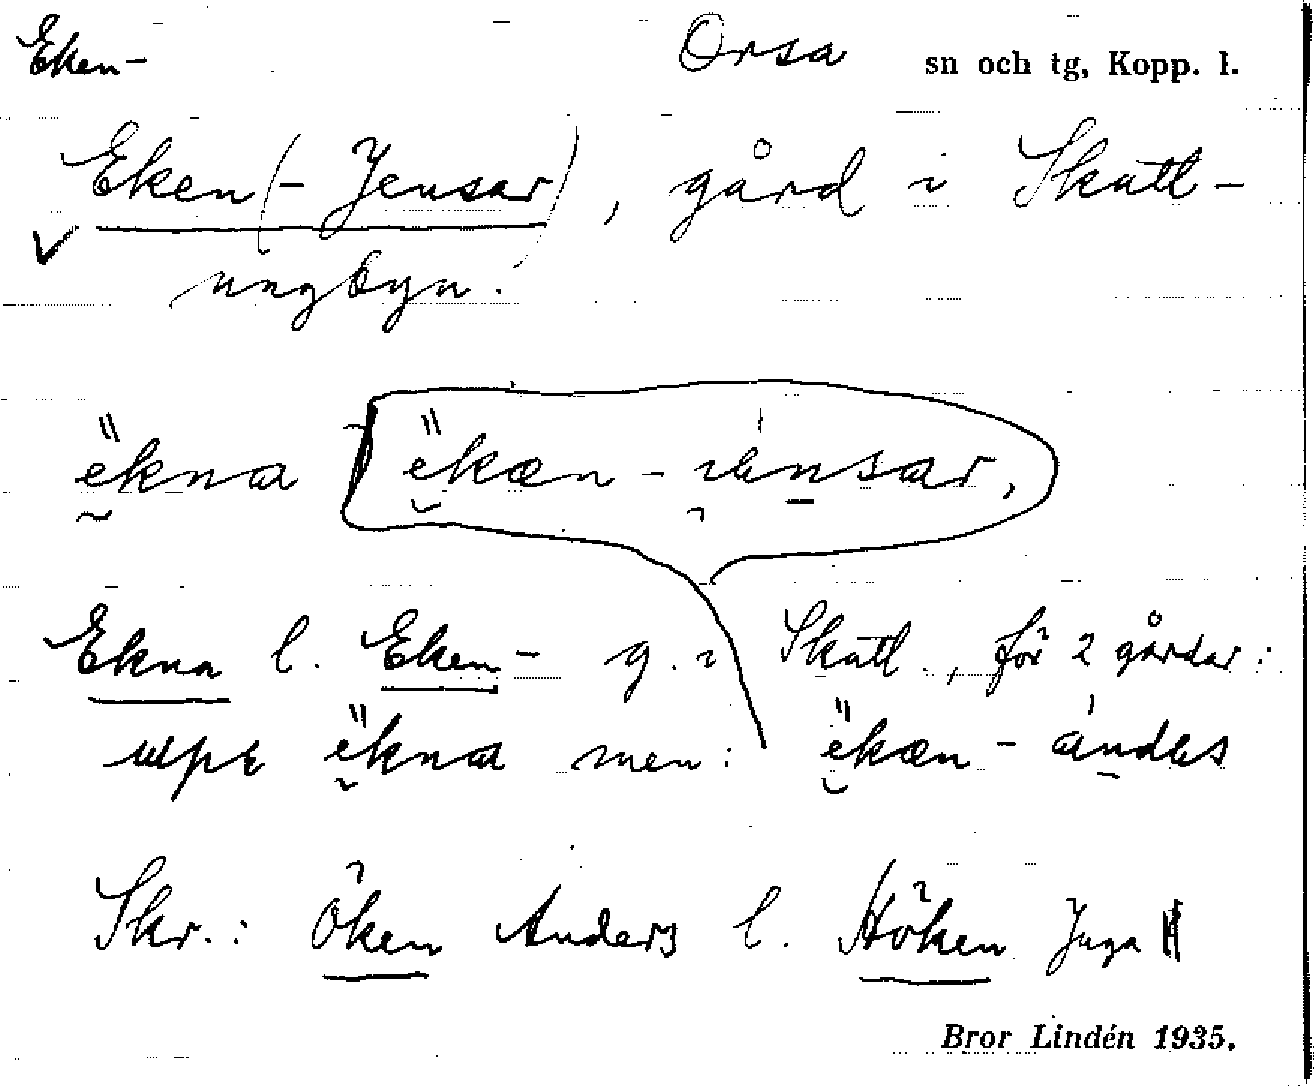 Eken- Orsa sn och tg, Kopp. l.
Eken(-Jensar), gård i Skatt-
ungbyn.
ëkna ëkæn - jensar,
Ekna l. Eken- g. i Skatt., för 2 gårdar:
uppe ëkna men: ëkæn - andes
Skr.: Öken Anders l. Höken Juga
Bror Lindén 1935.